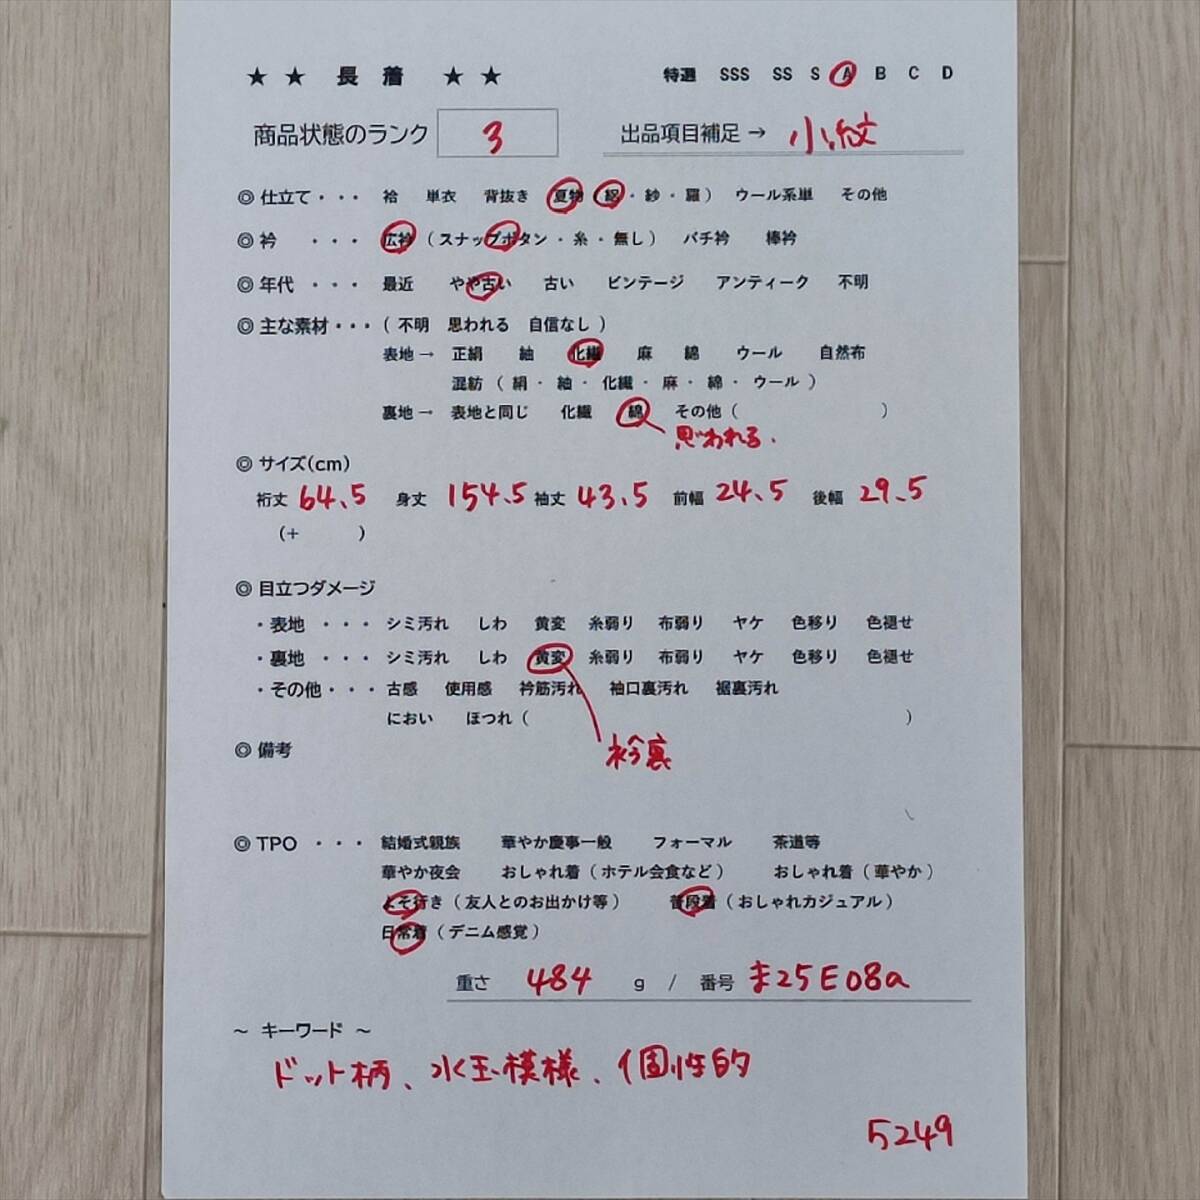 ★ ★ 長 着 ★ ★ 特選 SSS SS S A B C D
商品状態のランク 3 出品項目補足 → 小紋
◎ 仕立て・・・ 袷 単衣 背抜き 夏物 ( 絽・紗・羅 ) ウール系単 その他
◎ 衿 ・・・ 広衿 ( スナップボタン・糸・無し ) バチ衿 棒衿
◎ 年代 ・・・ 最近 やや古い 古い ビンテージ アンティーク 不明
◎ 主な素材・・・ ( 不明 思われる 自信なし )
表地 → 正絹 紬 化繊 麻 綿 ウール 自然布
混紡 ( 絹・紬・化繊・麻・綿・ウール )
裏地 → 表地と同じ 化繊 綿 その他 ( )
思われる.
◎ サイズ(cm)
裄丈 64.5 身丈 154.5 袖丈 43.5 前幅 24.5 後幅 29.5
(+ )
◎ 目立つダメージ
・表地 ・・・ シミ汚れ しわ 黄変 糸弱り 布弱り ヤケ 色移り 色褪せ
・裏地 ・・・ シミ汚れ しわ 黄変 糸弱り 布弱り ヤケ 色移り 色褪せ
・その他・・・ 古感 使用感 衿筋汚れ 袖口裏汚れ 裾裏汚れ
におい ほつれ ( )
衿裏
◎ 備考
◎ TPO ・・・ 結婚式親族 華やか慶事一般 フォーマル 茶道等
華やか夜会 おしゃれ着 ( ホテル会食など ) おしゃれ着 ( 華やか )
よそ行き ( 友人とのお出かけ等 ) 普段着 ( おしゃれカジュアル )
日常着 ( デニム感覚 )
重さ 484 g / 番号 ま25E08a
～ キーワード ～
ドット柄、水玉模様、個性的
5249